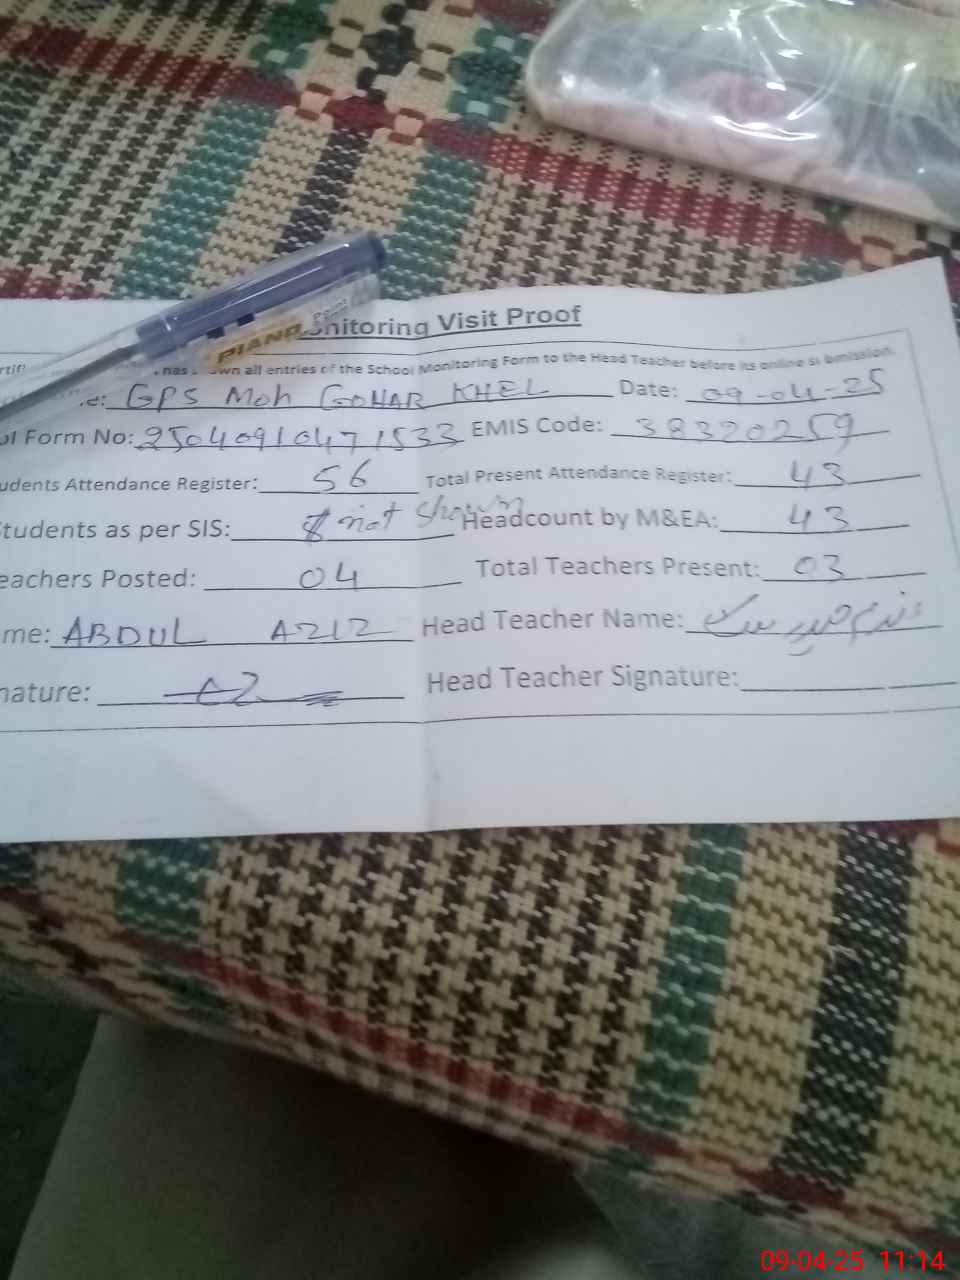 PIANO Point
nitoring Visit Proof
has wn all entries of the School Monitoring Form to the Head Teacher before its online submission.
e: GPS Moh GOHAR KHEL Date: 09-04-25
ol Form No: 2504091047 1533 EMIS Code: 38320259
udents Attendance Register: 56 Total Present Attendance Register: 43
Students as per SIS: not shown Headcount by M&EA: 43
eachers Posted: 04 Total Teachers Present: 03
me: ABDUL AZIZ Head Teacher Name:
nature: Head Teacher Signature:
09-04-25 11:14